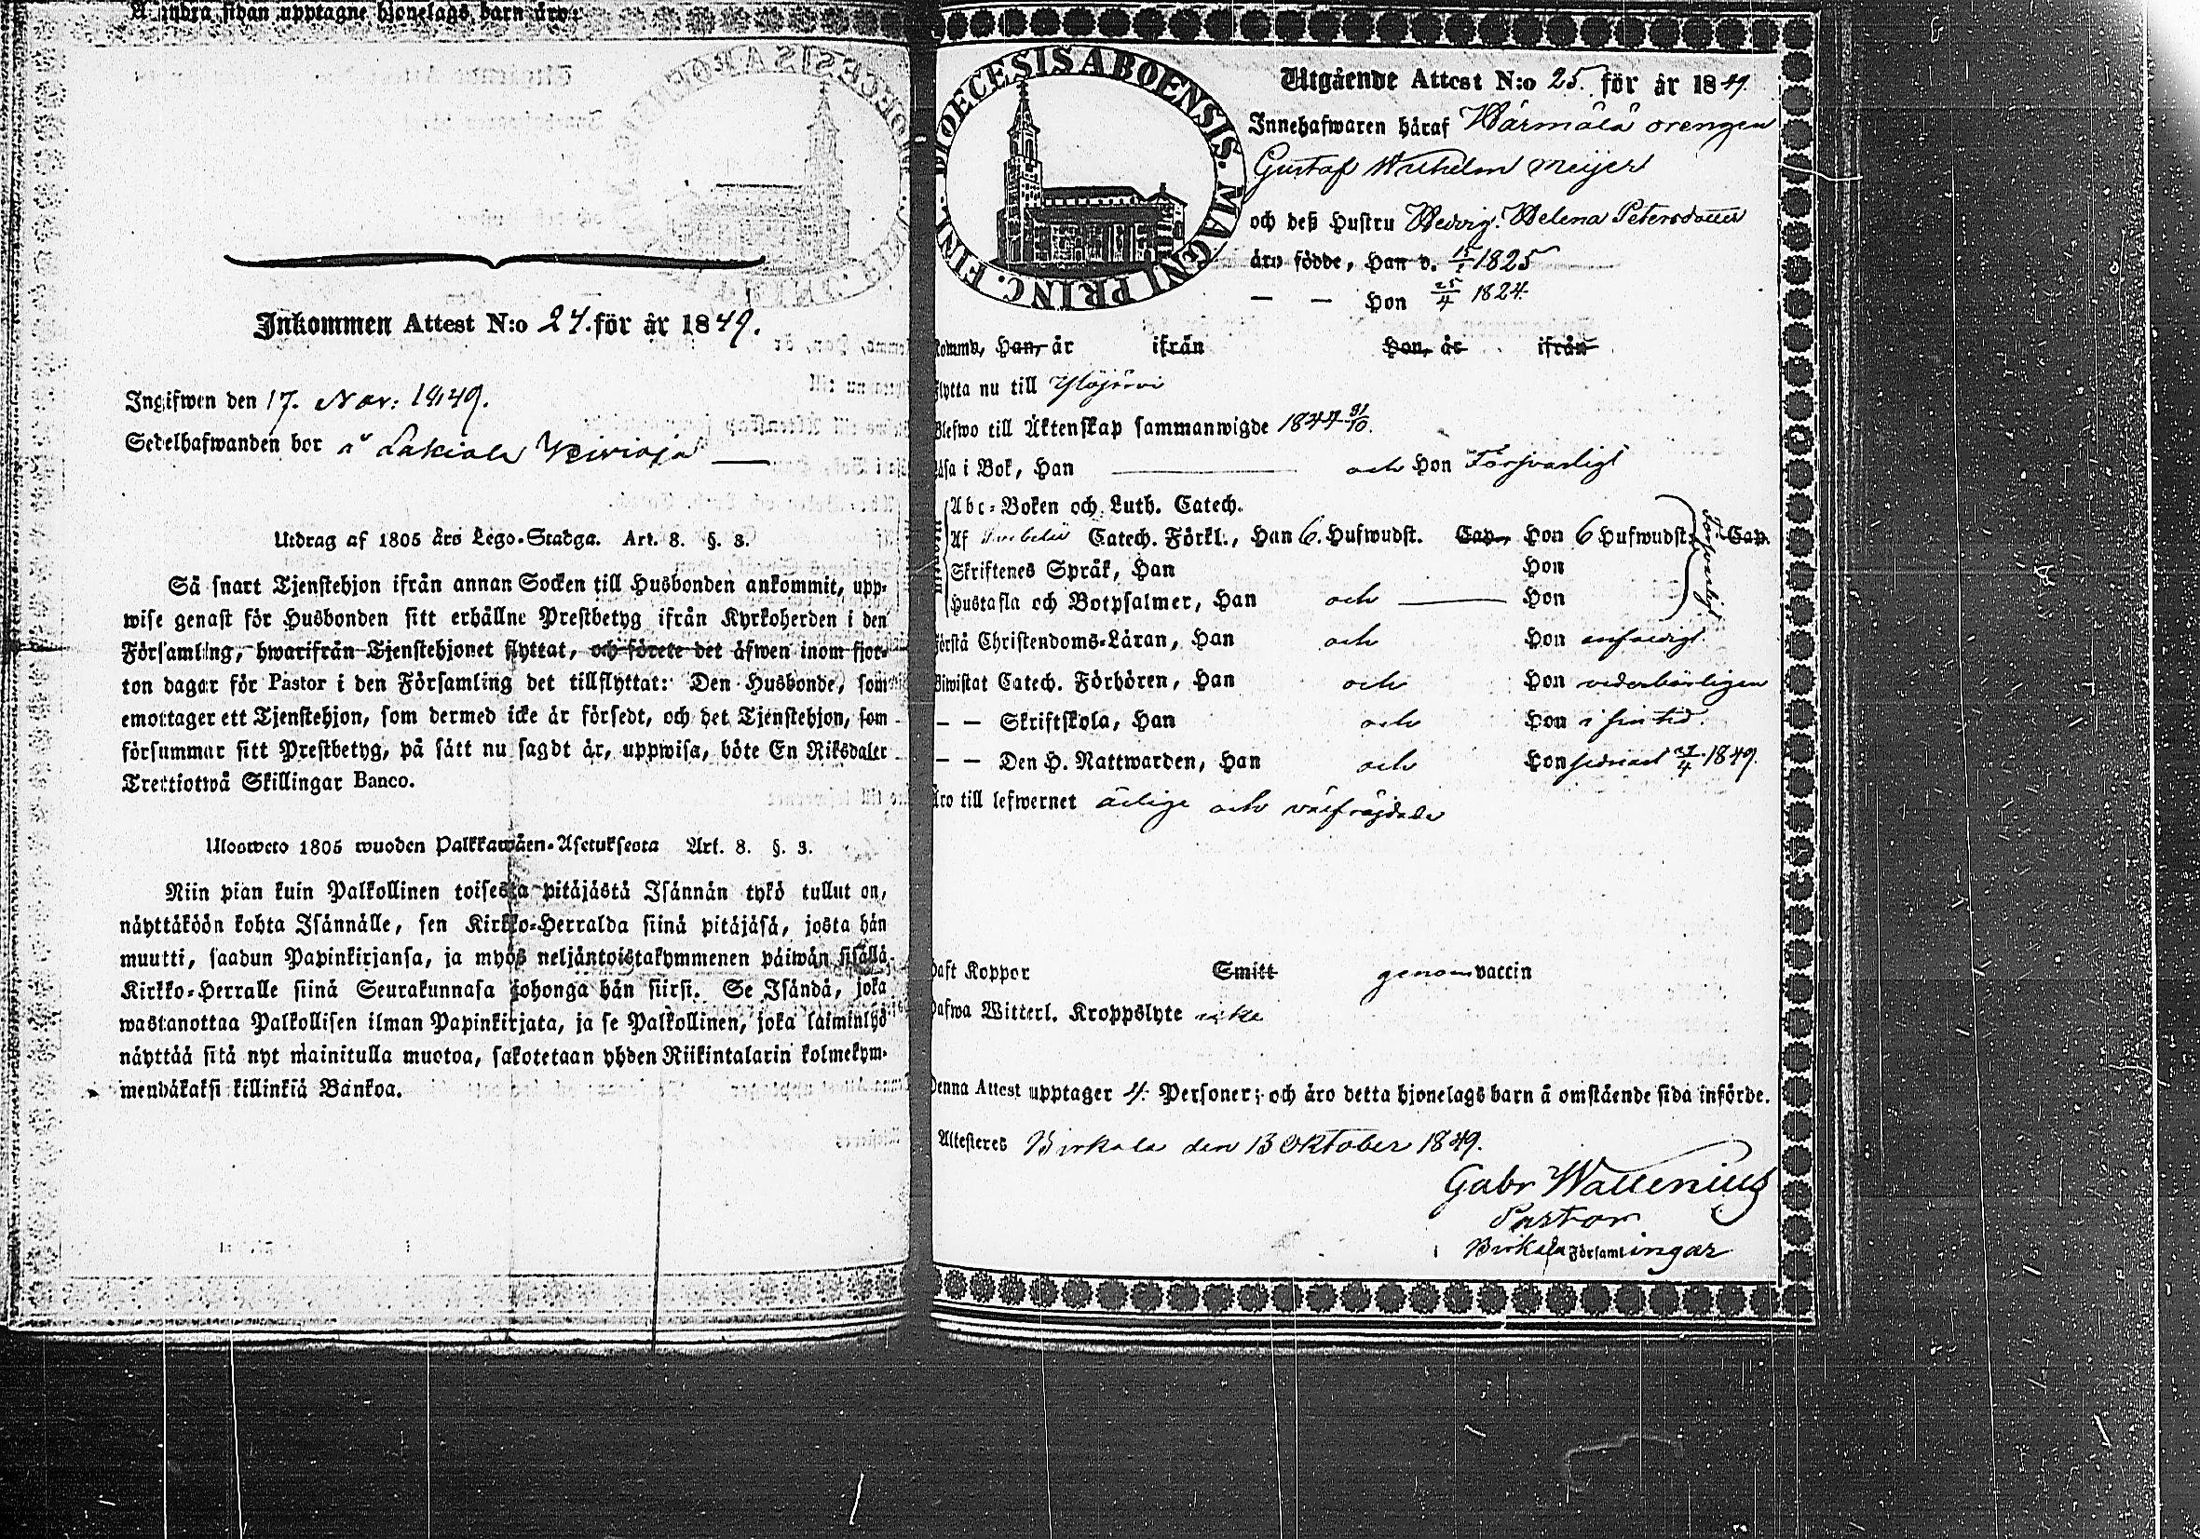 Å andra sidan upptagne hjonelags barn äro:
Inkommen Attest N:o 24. för år 1849.
Ingifwen den 17. Nov: 1849.
Sedelhafwanden bor å Lakiala
Utdrag af 1805 års Lego-Stadga. Art. 8. §. 3.
Så snart Tjenstehjon ifrån annan Socken till Husbonden ankommit, upp-
wise genast för Husbonden sitt erhållne Prestbetyg ifrån Kyrkoherden i den
Församling, hwarifrån Tjenstehjonet flyttat, och förete det äfwen inom fjor-
ton dagar för Pastor i den Församling det tillflyttat: Den Husbonde, som
emottager ett Tjenstehjon, som dermed icke är försedt, och det Tjenstehjon, som
försummar sitt Prestbetyg, på sätt nu sagdt är, uppwisa, böte En Riksdaler
Trettiotwå Skillingar Banco.
Ulosweto 1805 wuoden Palkkawäen-Asetuksesta Art. 8. §. 3.
Niin pian kuin Palkollinen toisesta pitäjästä Isännän tykö tullut on,
näyttäköön kohta Isännälle, sen Kirkko-Herralda siinä pitäjäsä, josta hän
muutti, saadun Papinkirjansa, ja myös neljäntoistakymmenen päiwän sisällä
Kirkko-Herralle siinä Seurakunnasa johonga hän siirsi. Se Isändä, joka
wastanottaa Palkollisen ilman Papinkirjata, ja se Palkollinen, joka laiminlyö
näyttää sitä nyt mainitulla muotoa, sakotetaan yhden Riikintalarin kolmekym-
mendäkaksi killinkiä Bankoa.
DIOECESIS ABOENSIS. MAGNI PRINC. FINL.
Utgående Attest N:o 25. för år 1849.
Innehafwaren häraf Härmälä drengen
Gustaf Wilhelm Meijer
och deß Hustru Hedvig Helena Petersdotter
äro födde, Han d. 15/1 1825
— — Hon 25/4 1824
Komme, Han, år ifrån Hon, år ifrån
Flytta nu till Ylöjärvi
Blefwo till Äktenskap sammanwigde 1844 31/10.
Läsa i Bok, Han och Hon Försvarligt
Abc-Boken och Luth. Catech.
Af Catech. Förkl., Han 6. Hufwudst. Cap., Hon 6 Hufwudst. Cap. Försvarligt
Skriftenes Språk, Han Hon
Hustafla och Botpsalmer, Han och Hon
Förstå Christendoms-Läran, Han och Hon enfaldigt
Biwistat Catech. Förhören, Han och Hon vederbörligen
— — Skriftskola, Han och Hon i sin tid.
— — Den H. Nattwarden, Han och Hon sednast 1849.
Äro till lefwernet ärlige och välfrägdade
Haft Koppor Smitt genom vaccin
Hafwa Witterl. Kroppslyte icke
Denna Attest upptager 4. Personer; och äro detta hjonelags barn å omstående sida införde.
Attesteras Birkala den 13 Oktober 1849.
Gabr Wallenius
Pastor
i Birkala Församlingar